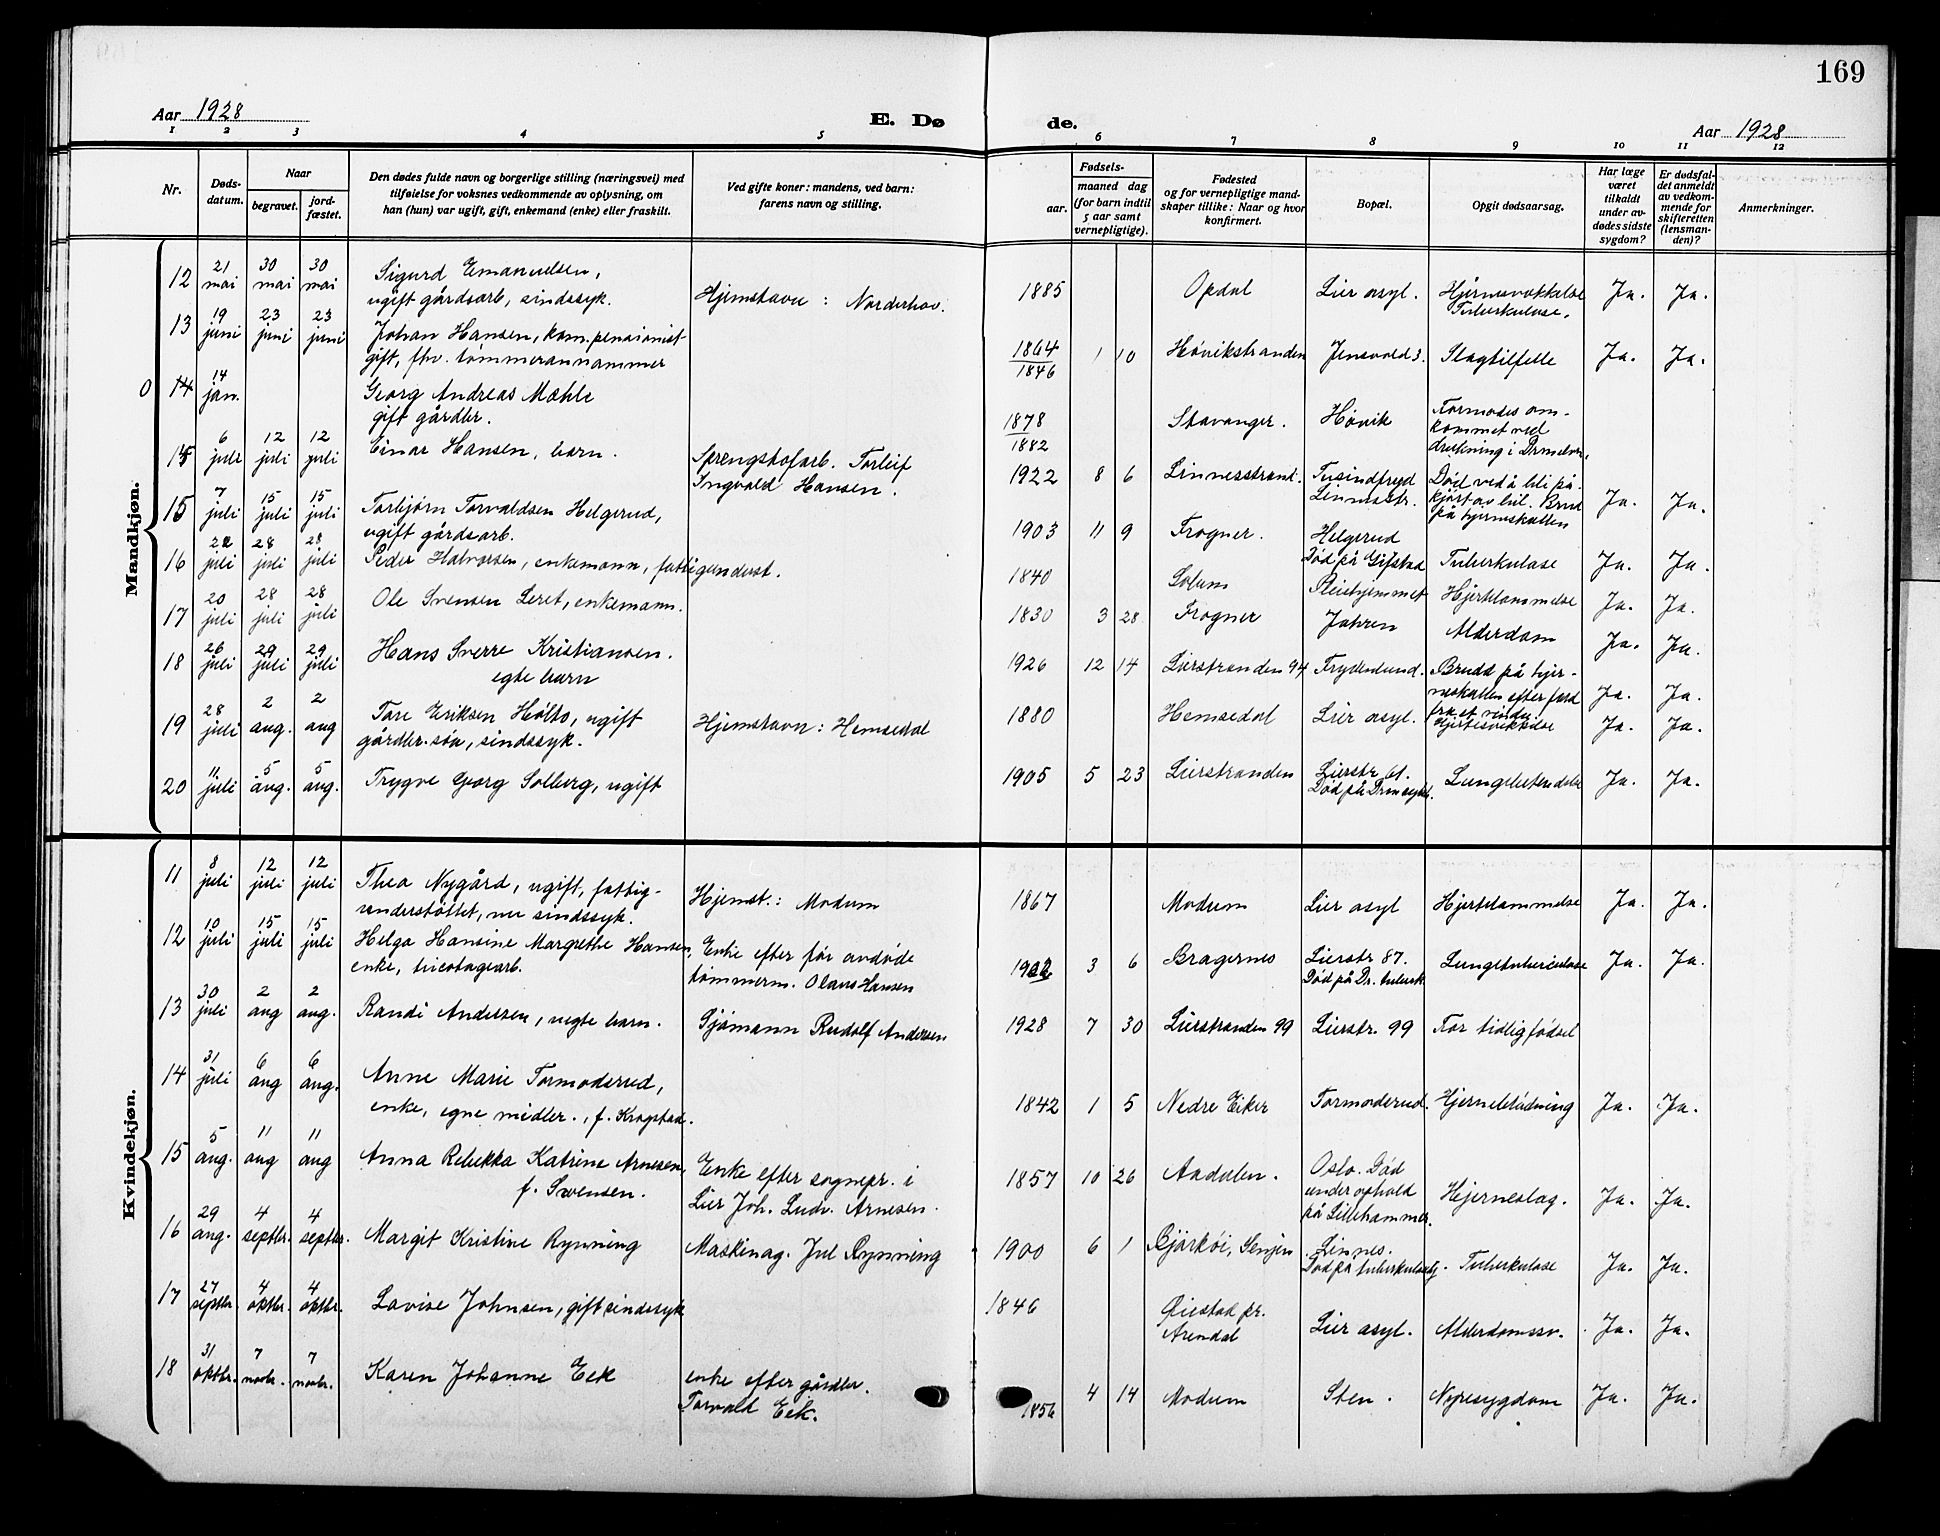 169
Aar 1928
E. Dø
de.
Aar 1928
1 2 3 4 5 6 7 8 9 10 11 12
Nr.
Døds-
datum.
Naar
begravet.
jord-
fæstet.
Den dødes fulde navn og borgerlige stilling (næringsvei) med
tilføielse for voksnes vedkommende av oplysning, om
han (hun) var ugift, gift, enkemand (enke) eller fraskilt.
Ved gifte koner: mandens, ved barn:
farens navn og stilling.
Fødsels-
aar.
maaned dag
(for barn indtil
5 aar samt
vernepligtige).
Fødested
og for vernepligtige mand-
skaper tillike: Naar og hvor
konfirmert.
Bopæl.
Opgit dødsaarsag.
Har læge
været
tilkaldt
under av-
dødes sidste
sygdom?
Er dødsfal-
det anmeldt
av vedkom-
mende for
skifteretten
(lensman-
den)?
Anmerkninger.
Mandkjøn.
12 21 mai 30 mai 30 mai Sigurd Emanuelsen,
ugift gårdsarb, sindssyk. Hjemstavn: Norderhov. 1885 Opdal Lier asyl. Hjernevækkelse Tuberkulose. Ja. Ja.
13 19 juni 23 juni 23 juni Johan Hansen, kom. pensionist
gift, fhv. tømmerannammer 1864 1846 1 10 Høvikstranden Jensvold 3. Slagtilfelle Ja. Ja.
0 14 14 jan. Georg Andreas Mæhle
gift gårdbr. 1878 1882 Stavanger. Høvik Formodes om-
kommet ved
drukning i Drmselven.
15 6 juli 12 juli 12 juli Einar Hansen, barn. Sprengstofarb. Torleif
Ingvald Hansen. 1922 8 6 Linnesstrand. Tusindfryd
Linnesstr. Død ved å bli på-
kjørt av bil. Brud
på hjerneskallen Ja. Ja.
15 7 juli 15 juli 15 juli Torbjørn Torvaldsen Helgerud,
ugift gårdsarb. 1903 11 9 Frogner. Helgerud
Død på Gifstad Tuberkulose Ja. Ja.
16 22 juli 28 juli 28 juli Peder Halvorsen, enkemann, fattigunderst. 1840 Solum Pleiehjemmet Hjertelammelse Ja. Ja.
17 20 juli 28 juli 28 juli Ole Svensen Leret, enkemann. 1830 3 28 Frogner Jahren Alderdom Ja. Ja.
18 26 juli 29 juli 29 juli Hans Sverre Kristiansen.
egte barn 1926 12 14 Lierstranden 94 Frydenlund. Brudd på hjer-
neskallen efter fald
fra et vindu. Ja. Ja.
19 28 juli 2 aug. 2 aug Tore Eriksen Hølto, ugift
gårdbr. søn, sindssyk. Hjemstavn: Hemsedal 1880 Hemsedal Lier asyl. Hjertesvækkelse Ja. Ja.
20 11 juli 5 aug. 5 aug. Trygve Georg Solberg, ugift 1905 5 23 Lierstranden Lierstr. 61.
Død på Drm sykeh. Lungebetendelse Ja. Ja.
Kvindekjøn.
11 8 juli 12 juli 12 juli Thea Nygård, ugift, fattig-
understøttet, nu sindssyk. Hjemst.: Modum 1867 Modum Lier asyl Hjertelammelse Ja. Ja.
12 10 juli 15 juli 15 juli Helga Hansine Margrethe Hansen,
enke, tricotagearb. Enke efter før avdøde
tømmerm. Olaus Hansen 1902 3 6 Bragernes Lierstr 87.
Død på Dr. tuberk. Lungetuberkulose Ja. Ja.
13 30 juli 2 aug 2 aug. Randi Andersen, uegte barn. Sjømann Rudolf Andersen 1928 7 30 Lierstranden 99 Lierstr. 99 For tidlig fødsel
14 31 juli 6 aug 6 aug. Anne Marie Tormodsrud,
enke, egne midler., f. Krogstad. 1842 1 5 Nedre Eiker Tormodsrud. Hjerneblødning Ja. Ja.
15 5 aug. 11 aug 11 aug Anna Rebekka Katrine Arnesen,
f. Svensen. Enke efter sognepr. i
Lier Joh. Ludv. Arnesen. 1857 10 26 Andalen. Oslo. Død
under ophold
på Lillehammer. Hjerneslag. Ja. Ja.
16 29 aug. 4 septbr. 4 septbr. Margit Kristine Rynning Maskinag. Jul Rynning 1900 6 1 Bjarkøi, Senjen Linnes.
Død på tuberkulosehj. Tuberkulose Ja. Ja.
17 27 septbr. 4 oktbr. 4 oktbr. Lovise Johnsen, gift sindssyk 1846 Øiestad pr.
Arendal Lier asyl. Alderdomssv. Ja. Ja.
18 31 oktbr. 7 novbr. 7 novbr. Karen Johanne Eek enke efter gårdbr.
Torvald Eek. 1856 4 14 Modum Sten. Nyresygdom Ja. Ja.